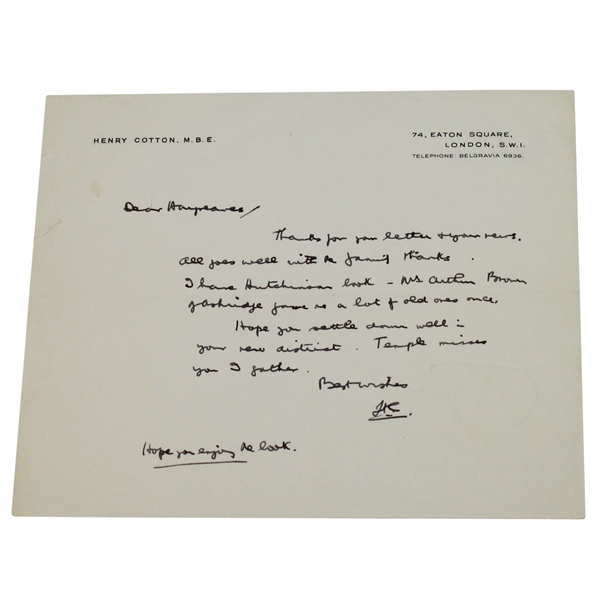 HENRY COTTON, M.B.E.
74, EATON SQUARE,
LONDON, S.W.I.
TELEPHONE: BELGRAVIA 6936.
Dear Hargreaves/
Thanks for your letter & your news.
All goes well with the family thanks.
I have Hutchinson book – Mrs Arthur Brown
of Ashridge gave us a lot of old ones once.
Hope you settle down well in
your new district. Temple misses
you I gather.
Best wishes
Hope you enjoy the book.